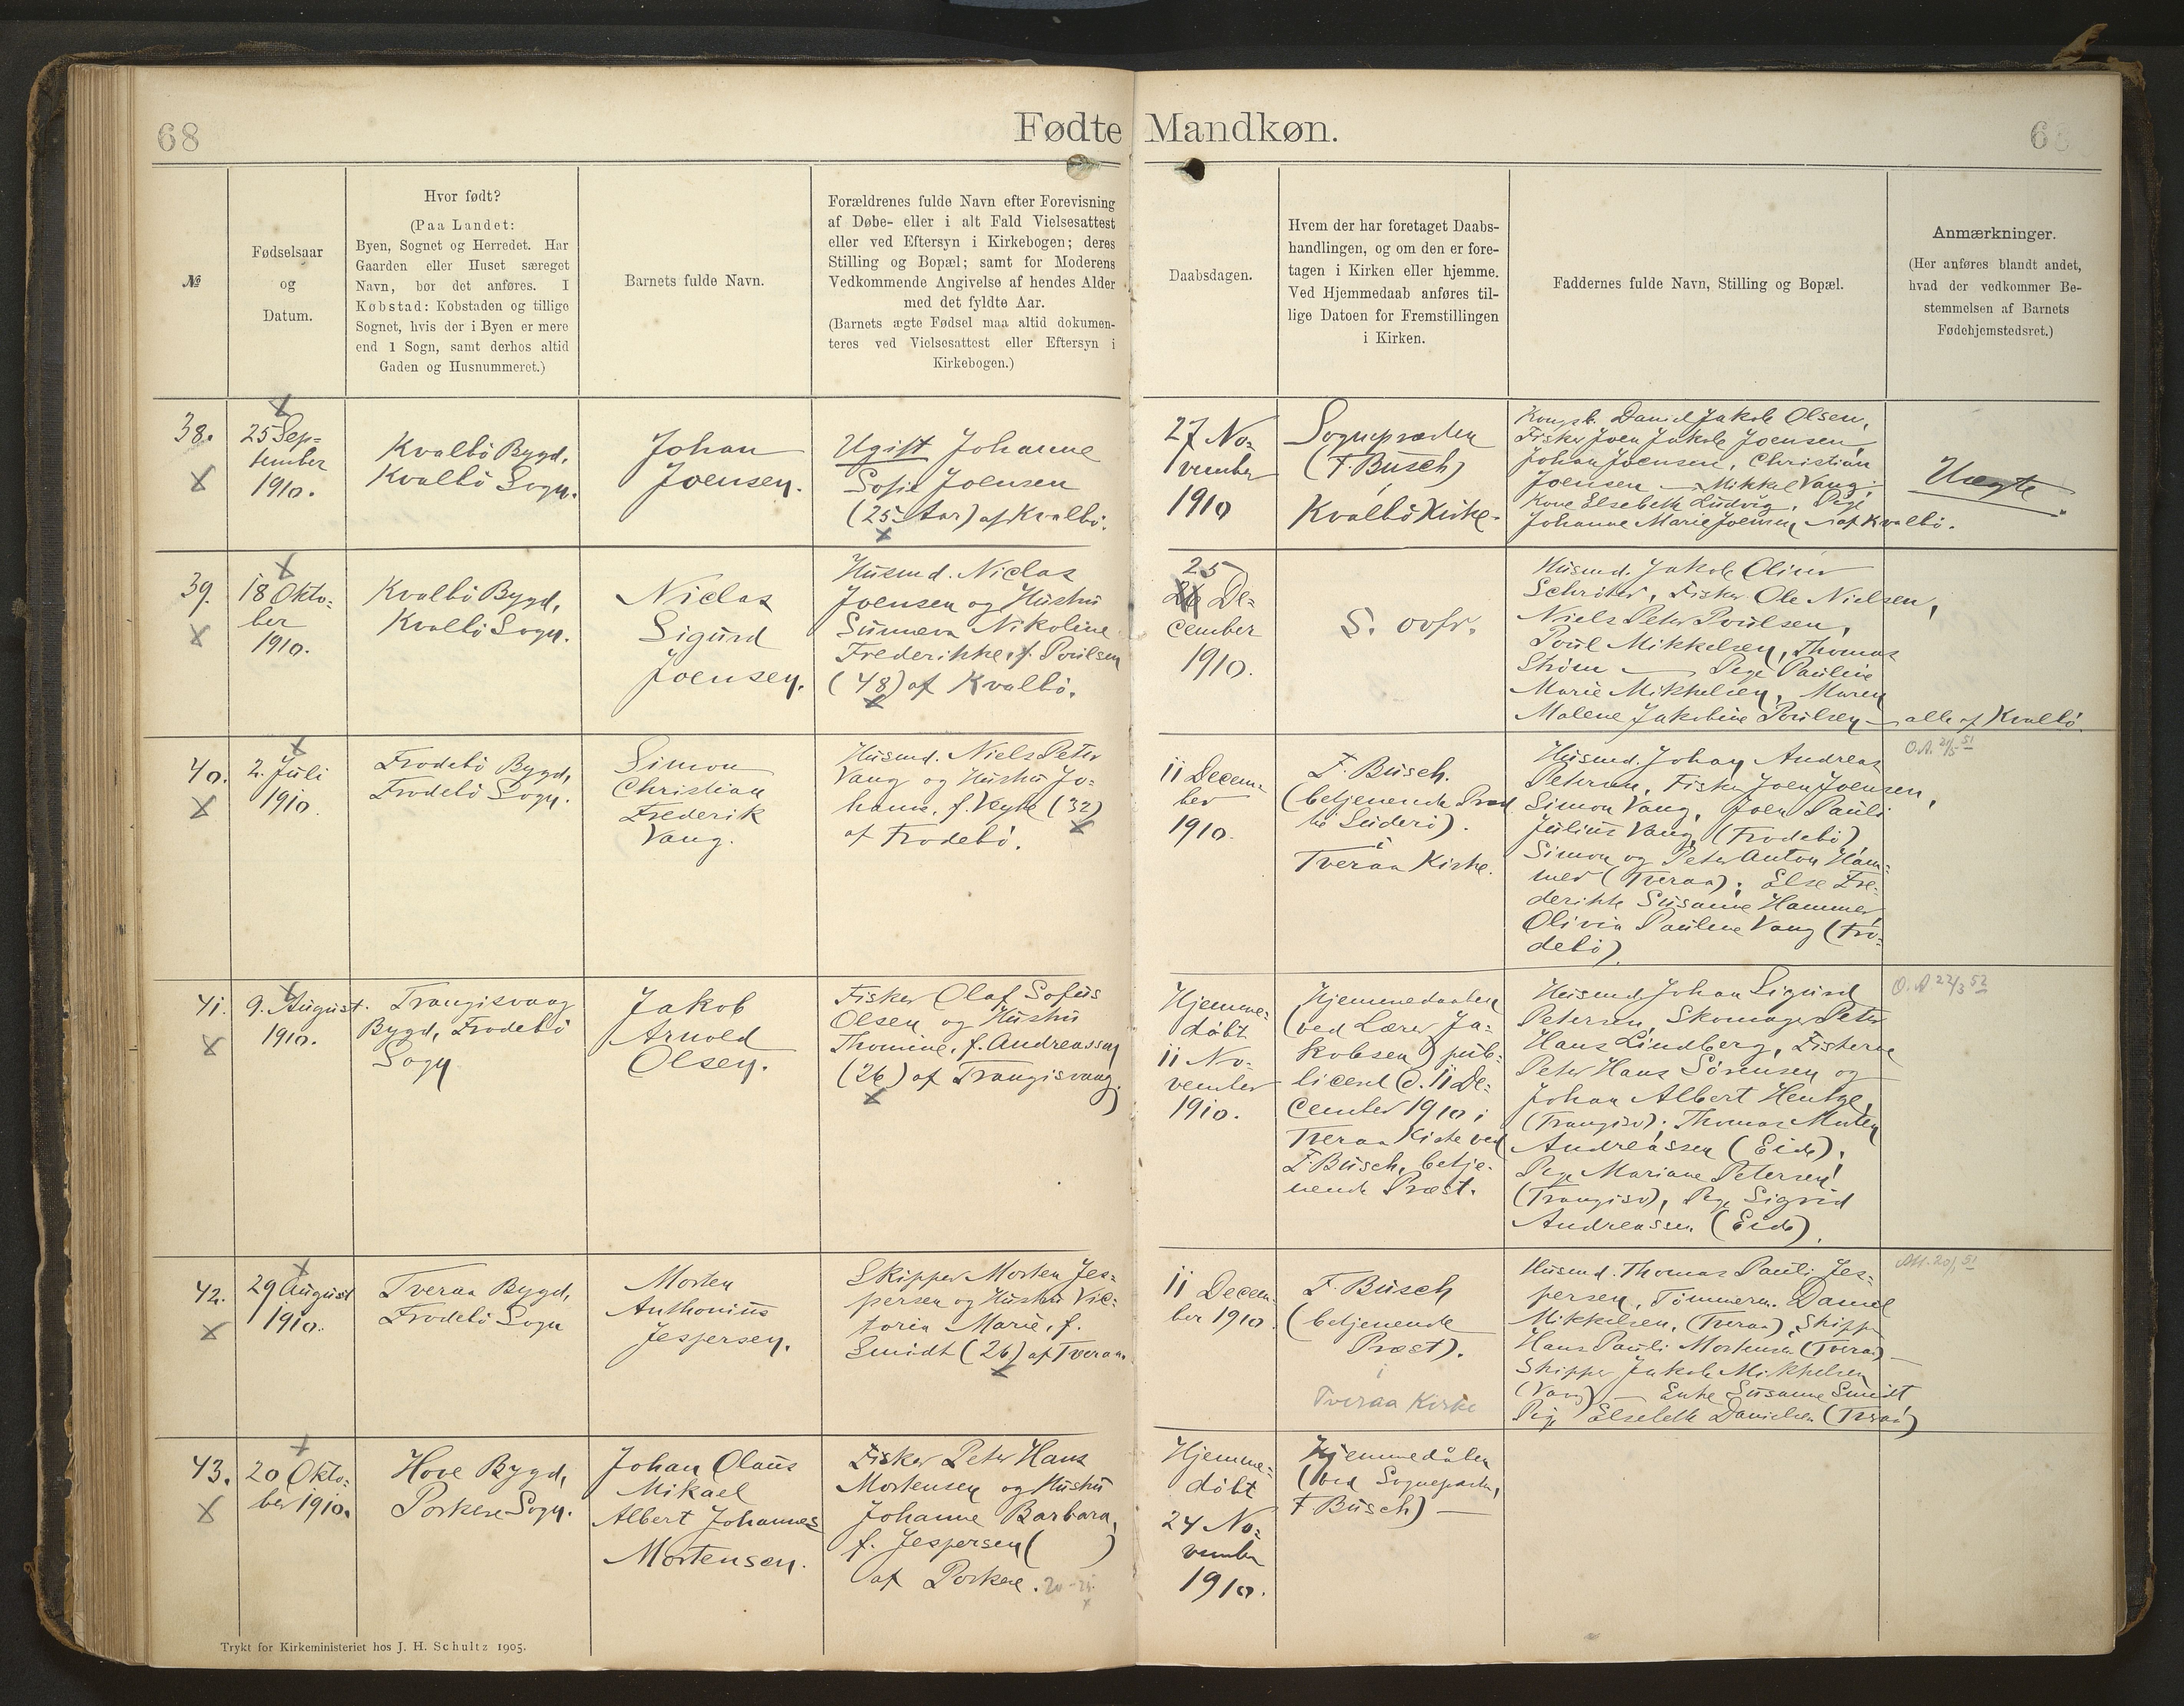 68
Fødte Mandkøn.
68
№
Fødselsaar
og
Datum.
Hvor født?
(Paa Landet:
Byen, Sognet og Herredet. Har
Gaarden eller Huset særeget
Navn, bør det anføres. I
Købstad: Købstaden og tillige
Sognet, hvis der i Byen er mere
end 1 Sogn, samt derhos altid
Gaden og Husnummeret.)
Barnets fulde Navn.
Forældrenes fulde Navn efter Forevisning
af Døbe- eller i alt Fald Vielsesattest
eller ved Eftersyn i Kirkebogen; deres
Stilling og Bopæl; samt for Moderens
Vedkommende Angivelse af hendes Alder
med det fyldte Aar.
(Barnets ægte Fødsel maa altid dokumen-
teres ved Vielsesattest eller Eftersyn i
Kirkebogen.)
Daabsdagen.
Hvem der har foretaget Daabs-
handlingen, og om den er fore-
tagen i Kirken eller hjemme.
Ved Hjemmedaab anføres til-
lige Datoen for Fremstillingen
i Kirken.
Faddernes fulde Navn, Stilling og Bopæl.
Anmærkninger.
(Her anføres blandt andet,
hvad der vedkommer Be-
stemmelsen af Barnets
Fødehjemstedsret.)
38.
25 Sep=
tember
1910.
Kvalbö Bygd,
Kvalbö Sogn.
Johan
Joensen.
Ugift Johanne
Sofie Joensen
(25 Aar) af Kvalbö.
27 No=
vember
1910
Sognepræsten
(F. Busch)
Kvalbö Kirke.
Kongsb. Daniel Jakob Olsen,
Fisker Joen Jakob Joensen,
Johan Joensen, Christian
Joensen — Mikkel Vang,
Kone Elsebeth Ludvig, Pige
Johanne Marie Joensen — af Kvalbö.
Uægte
39.
18 Okto=
ber
1910.
Kvalbö Bygd,
Kvalbö Sogn.
Niclas
Sigurd
Joensen.
Husmd. Niclas
Joensen og Hustru
Sunneva Nikoline
Frederikke, f. Poulsen
(48) af Kvalbö.
25
De=
cember
1910.
S. ovfr.
Husmd. Jakob Oliver
Schröter, Fisker Ole Nielsen,
Niels Peter Poulsen,
Poul Mikkelsen, Thomas
Ström — Pige Pauline
Marie Mikkelsen, Maren
Malene Jakobine Poulsen — alle af Kvalbö.
40.
2. Juli
1910.
Frodebö Bygd,
Frodebö Sogn.
Simon
Christian
Frederik
Vang.
Husmd. Niels Peter
Vang og Hustru Jo=
hanne, f. Veyhe (32)
af Frodebö.
11 Decem=
ber
1910.
F. Busch.
(betjenende Præst
til Suderö).
i
Tveraa Kirke.
Husmd. Johan Andreas
Petersen, Fisker Joen Joensen,
Simon Vang, Joen Pauli
Julius Vang, (Frodebö)
Simon og Peter Anton Ham=
mer (Tveraa); Else Fre=
derikke Susanne Hammer,
Olivia Pauline Vang (Fro=
debö).
41.
9. August.
1910.
Trangisvaag
Bygd, Frodebö
Sogn
Jakob
Arnold
Olsen.
Fisker Olaf Sofus
Olsen og Hustru
Thomine, f. Andreassen
(26) af Trangisvaag.
Hjemme=
döbt
11 No=
vember
1910.
Hjemmedaaben
(ved Lærer Ja=
kobsen) pub=
liceret d. 11 De=
cember 1910 i
Tveraa Kirke ved
F. Busch, betje=
nende Præst.
Husmd. Johan Sigurd
Petersen, Skomager Peter
Hans Lindberg, Fiskerne
Peter Hans Sörensen og
Johan Albert Hentze,
(Trangisv); Thomas Morten
Andreassen (Eide),
Pige Mariane Petersen
(Trangisv), Pige Sigrid
Andreassen (Eide).
42.
29 August
1910.
Tveraa Bygd,
Frodebö Sogn
Morten
Anthonius
Jespersen.
Skipper Morten Jes=
persen og Hustru Vic=
toria Marie, f.
Smidt (26) af Tveraa.
11 Decem=
ber 1910.
F. Busch
(betjenende
Præst).
i
Tveraa Kirke
Husmd. Thomas Pauli Jes=
persen, Tömmerm. Daniel
Mikkelsen, (Tveraa), Skipper
Hans Pauli Mortensen (Tveraa) —
Skipper Jakob Mikkelsen
(Vaag) — Enke Susanne Smidt
Pige Elsebeth Danielsen (Tveraa)
43.
20 Okto=
ber 1910.
Hove Bygd,
Porkere Sogn.
Johan Olaus
Mikael
Albert Johannes
Mortensen.
Fisker Peter Hans
Mortensen og Hustru
Johanne Barbara,
f. Jespersen ( )
af Porkere.
Hjemme=
döbt
24 No=
vember
1910.
Hjemmedåben
(ved Sognepræsten,
F. Busch) —
Trykt for Kirkeministeriet hos J. H. Schultz 1905.